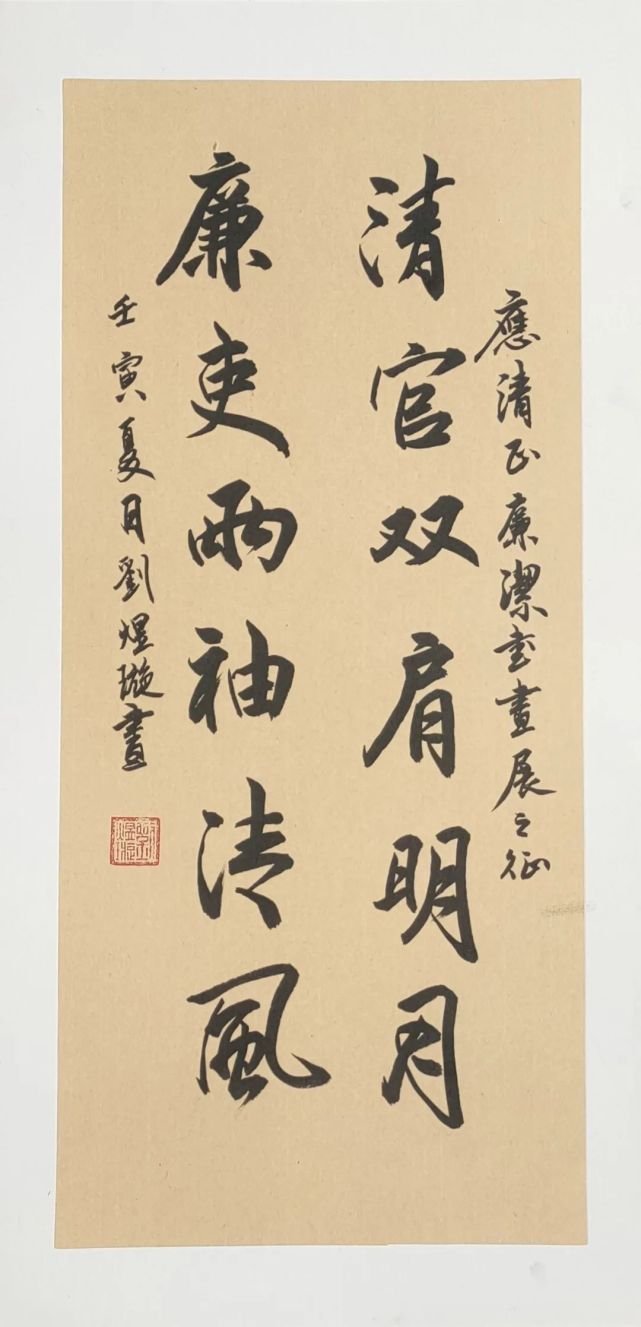 應清正廉潔書畫展之征
清官双肩明月
廉吏兩袖清風
壬寅夏月劉煜璇書